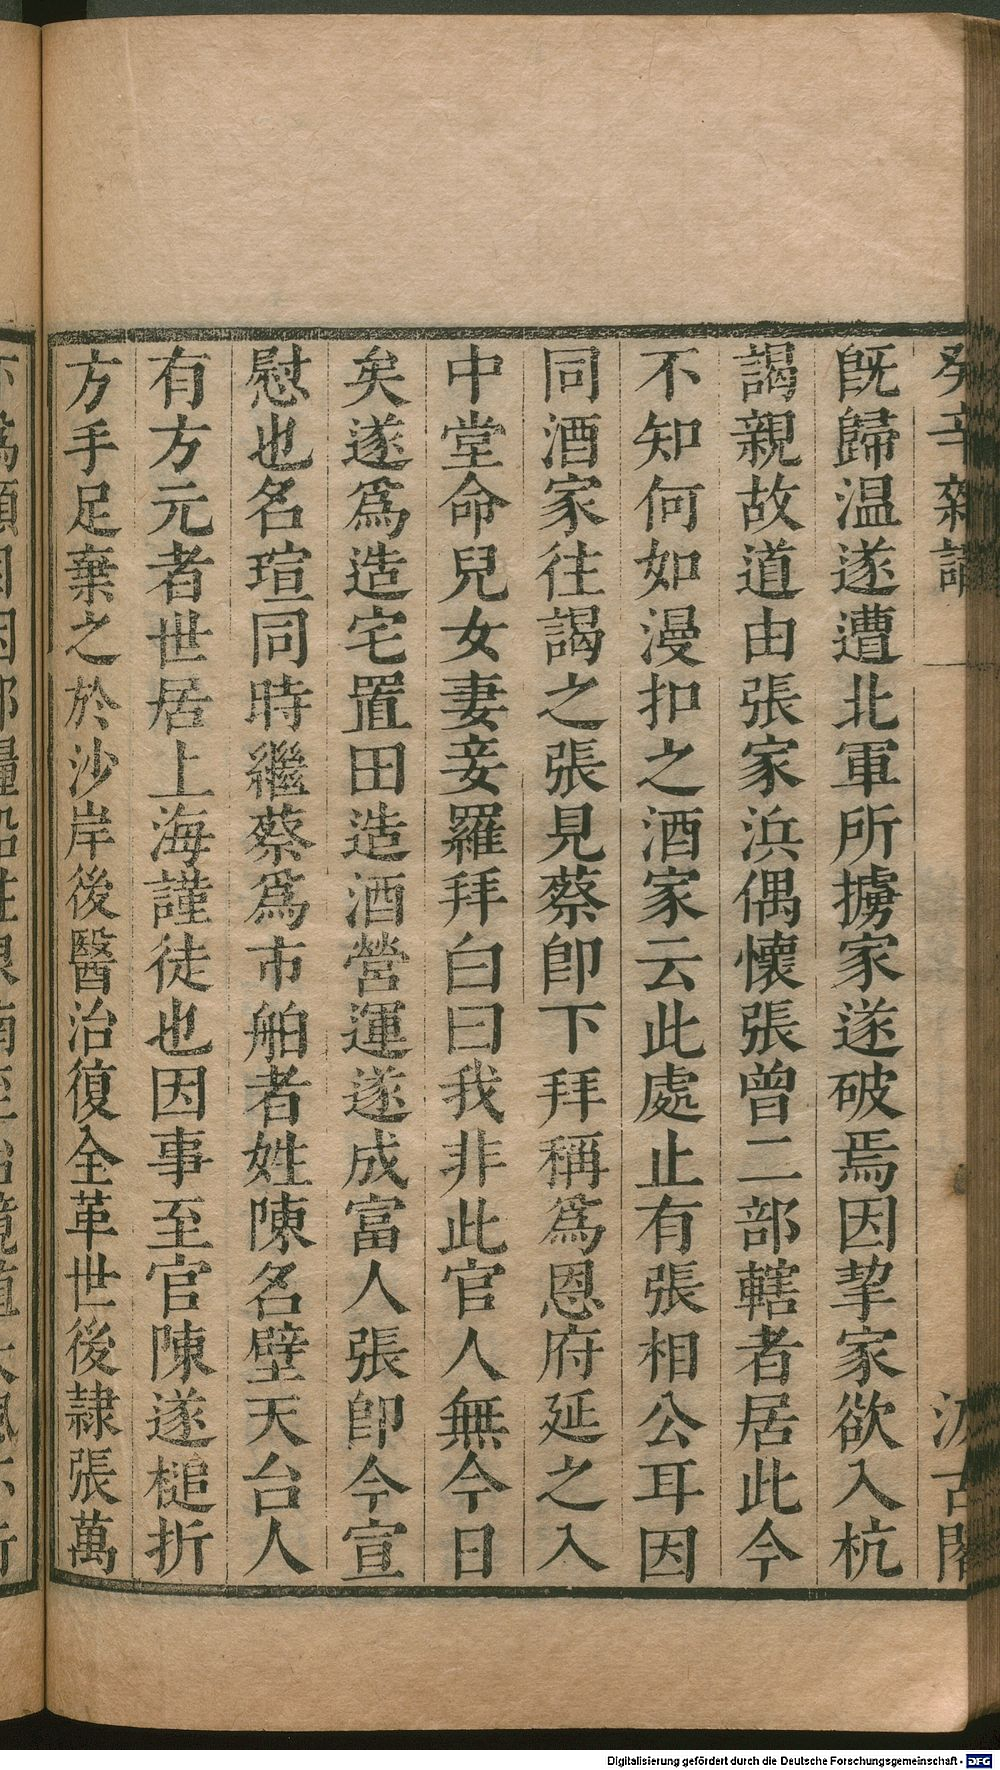 癸辛雜識
汲古閣
旣歸温遂遭北軍所擄家遂破焉因挈家欲入杭
謁親故道由張家浜偶懷張曾二部轄者居此今
不知何如漫扣之酒家云此處止有張相公耳因
同酒家往謁之張見蔡卽下拜稱爲恩府延之入
中堂命兒女妻妾羅拜白曰我非此官人無今日
矣遂爲造宅置田造酒營運遂成富人張卽今宣
慰也名瑄同時繼蔡爲市舶者姓陳名壁天台人
有方元者世居上海謹徒也因事至官陳遂槌折
方手足棄之於沙岸後醫治復全革世後隷張萬
Digitalisierung gefördert durch die Deutsche Forschungsgemeinschaft - DFG